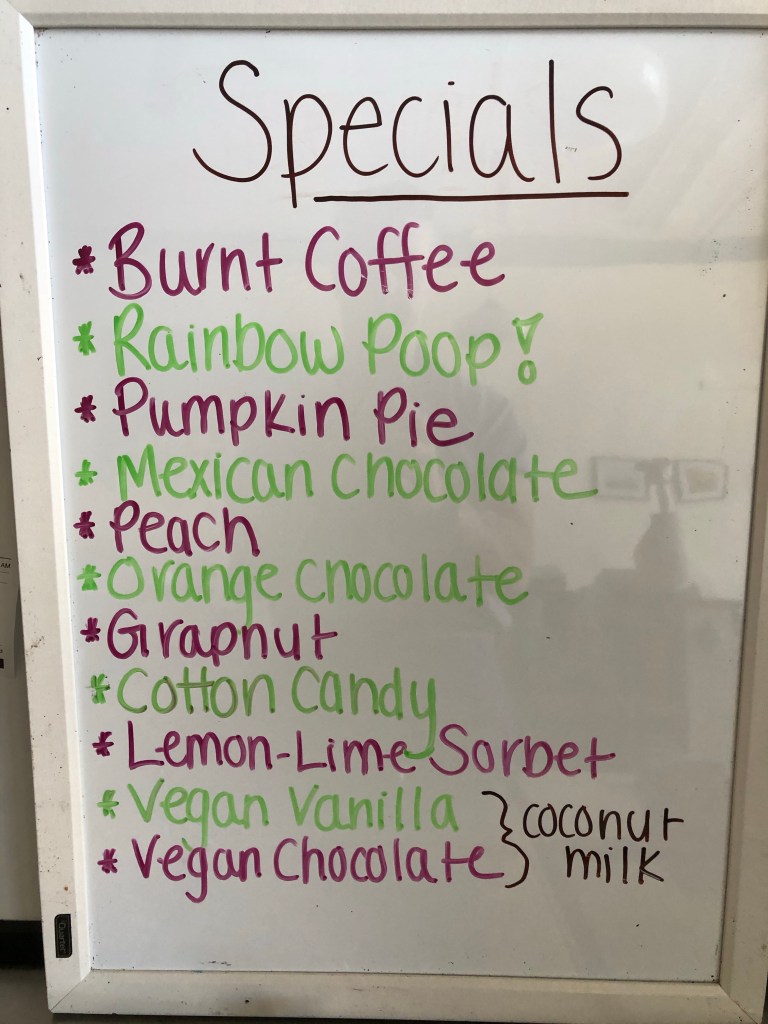 Specials
* Burnt Coffee
* Rainbow Poop!
* Pumpkin Pie
* Mexican Chocolate
* Peach
* Orange Chocolate
* Grapnut
* Cotton Candy
* Lemon-Lime Sorbet
* Vegan Vanilla
* Vegan Chocolate
} coconut
milk
Quartet
AM